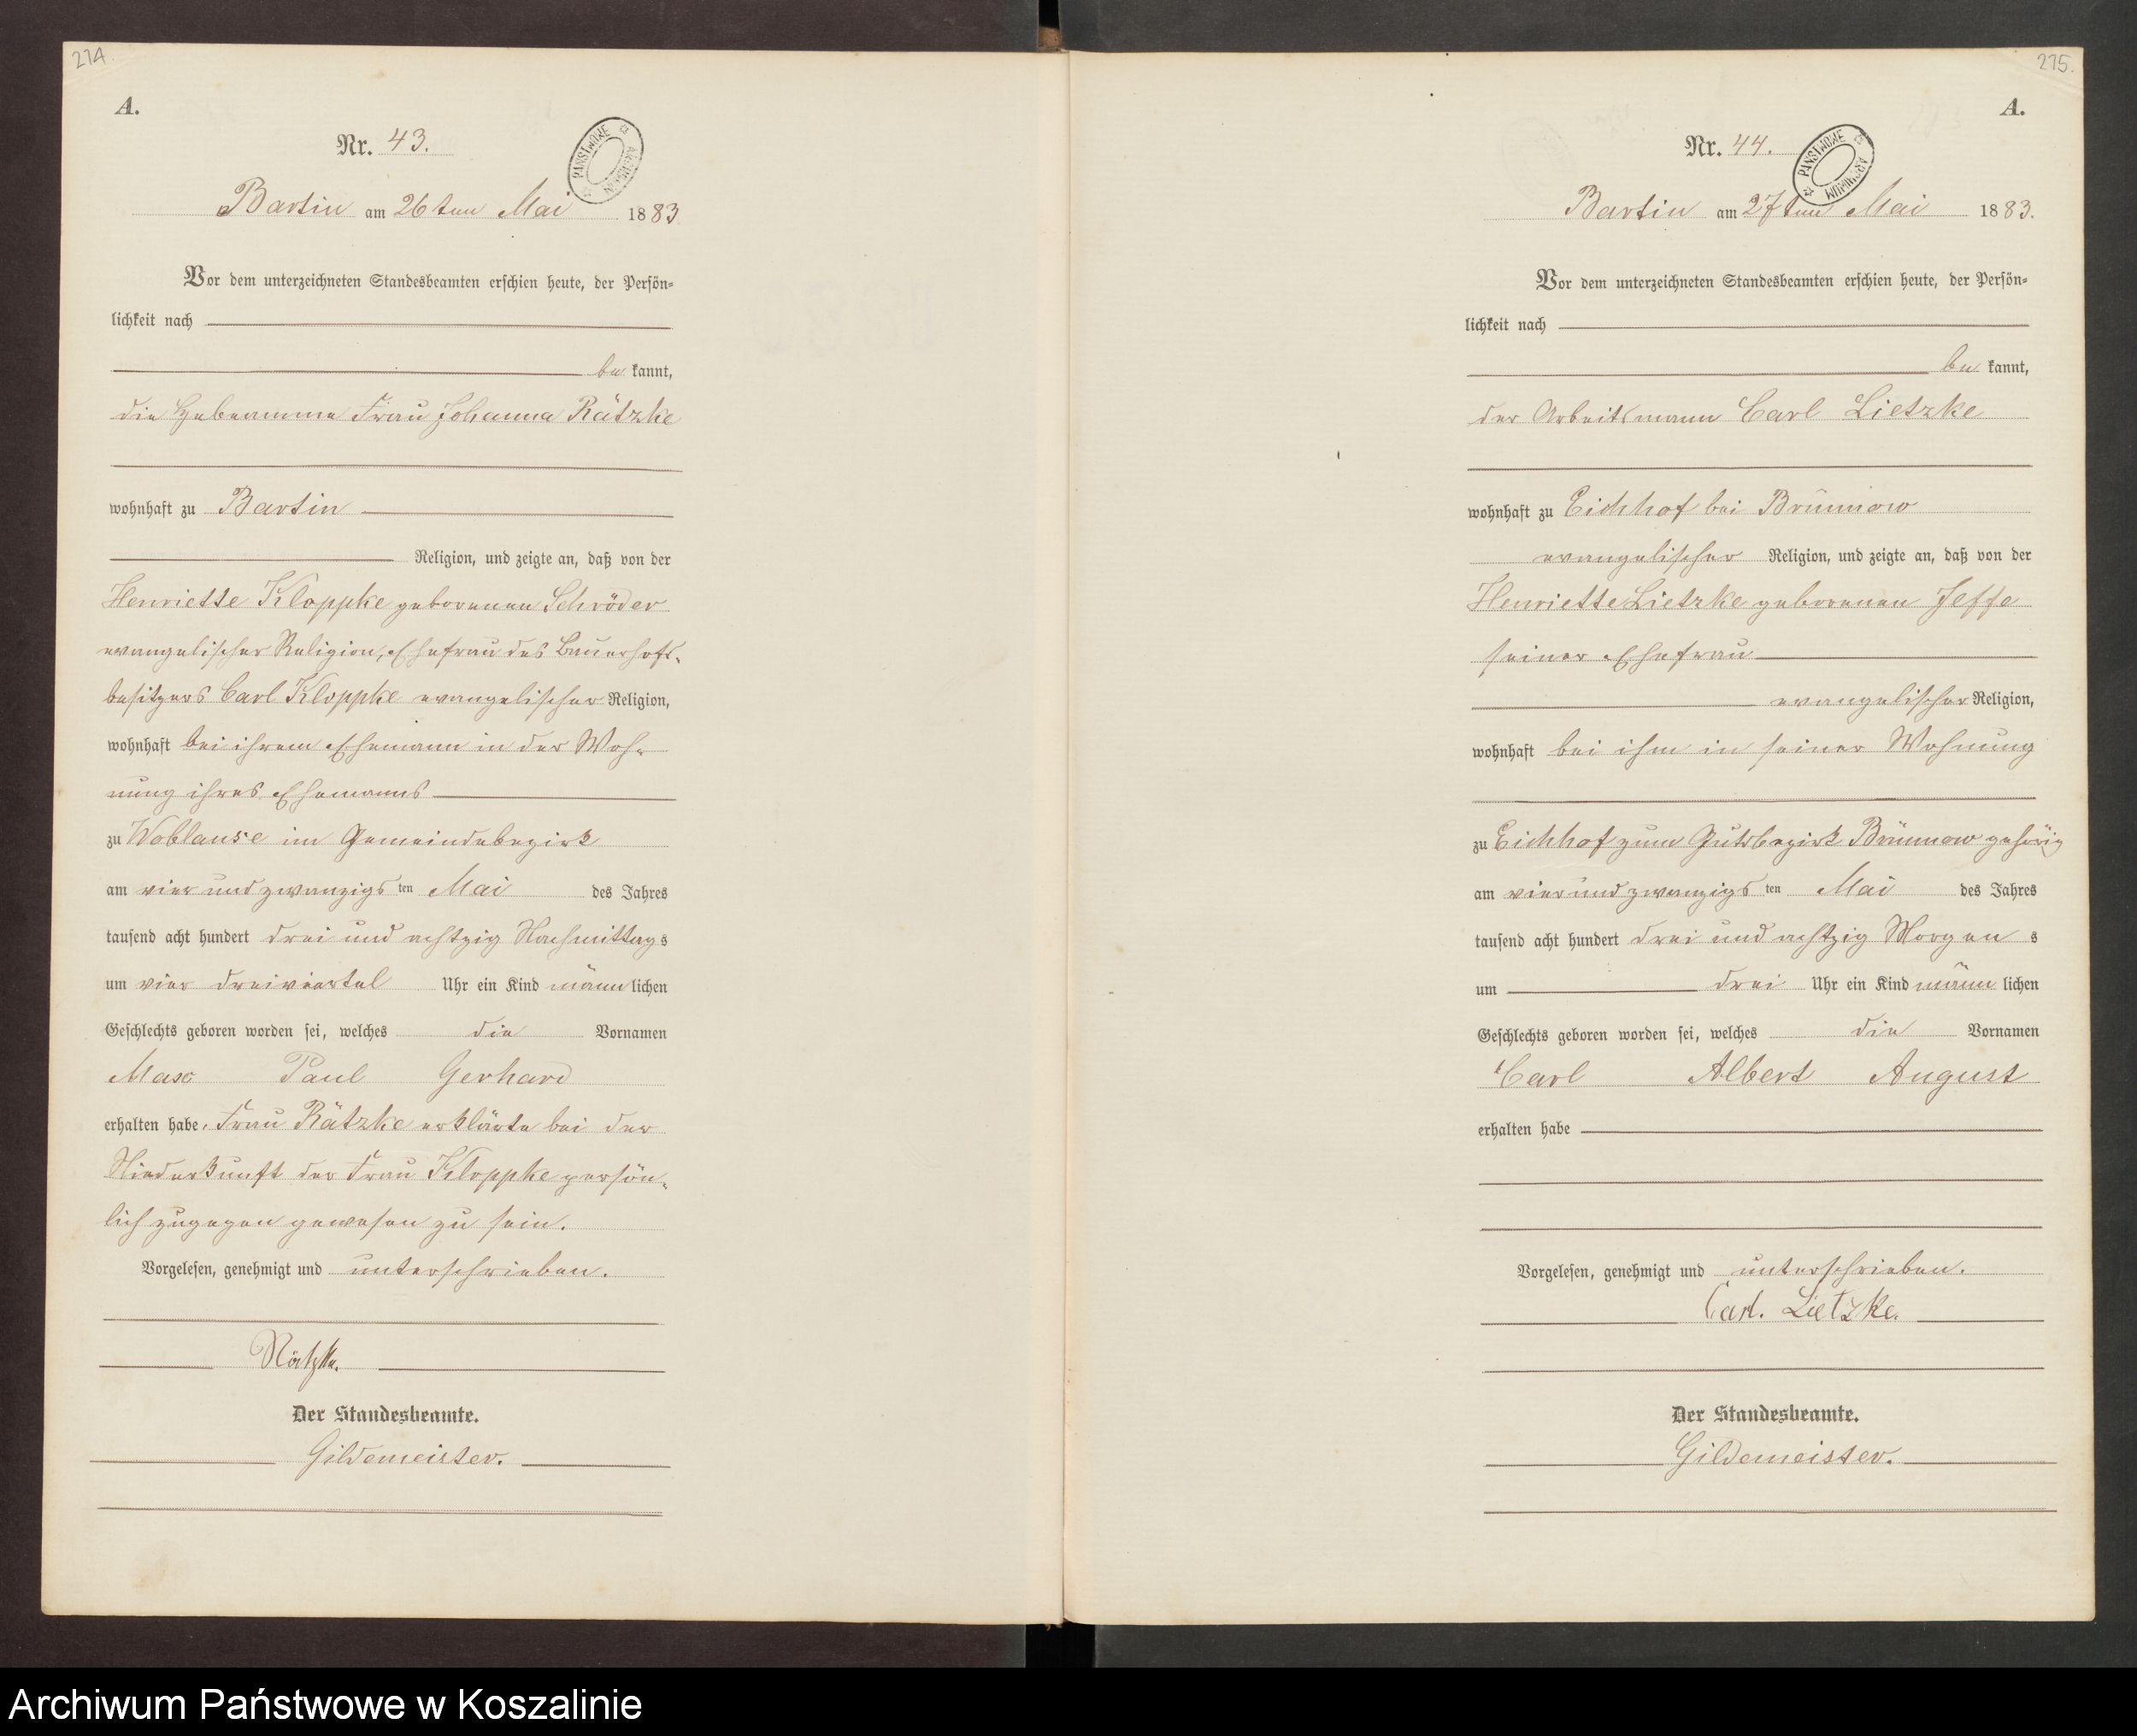 274.
A.
Nr. 43.
PAŃSTWOWE ARCHIWUM
Bartin am 26ten Mai 1883
Vor dem unterzeichneten Standesbeamten erschien heute, der Persön-
lichkeit nach
be kannt,
die Hebeamme Frau Johanna Rätzke
wohnhaft zu Bartin
Religion, und zeigte an, daß von der
Henriette Kloppke geborenen Schröder
evangelischer Religion, Ehefrau des Bauerhofs-
besitzers Carl Kloppke evangelischer Religion,
wohnhaft bei ihrem Ehemann in der Woh-
nung ihres Ehemanns
zu Woblanse im Gemeindebezirk
am vier und zwanzigs ten Mai des Jahres
tausend acht hundert drei und achtzig Nachmittag s
um vier dreiviertel Uhr ein Kind männ lichen
Geschlechts geboren worden sei, welches die Vornamen
Max Paul Gerhard
erhalten habe. Frau Rätzke erklärte bei der
Niederkunft der Frau Kloppke persön-
lich zugegen gewesen zu sein.
Vorgelesen, genehmigt und unterschrieben.
Rätzke.
Der Standesbeamte.
Gildemeister.
275.
A.
Nr. 44.
PAŃSTWOWE ARCHIWUM
Bartin am 27ten Mai 1883.
Vor dem unterzeichneten Standesbeamten erschien heute, der Persön-
lichkeit nach
be kannt,
der Arbeitsmann Carl Lietzke
wohnhaft zu Eichhof bei Brünnow
evangelischer Religion, und zeigte an, daß von der
Henriette Lietzke geborenen Jeffe
seiner Ehefrau
evangelischer Religion,
wohnhaft bei ihm in seiner Wohnung
zu Eichhof zum Gutsbezirk Brünnow gehörig
am vier und zwanzigs ten Mai des Jahres
tausend acht hundert drei und achtzig Morgen s
um drei Uhr ein Kind männ lichen
Geschlechts geboren worden sei, welches die Vornamen
Carl Albert August
erhalten habe
Vorgelesen, genehmigt und unterschrieben.
Carl. Lietzke.
Der Standesbeamte.
Gildemeister.
Archiwum Państwowe w Koszalinie